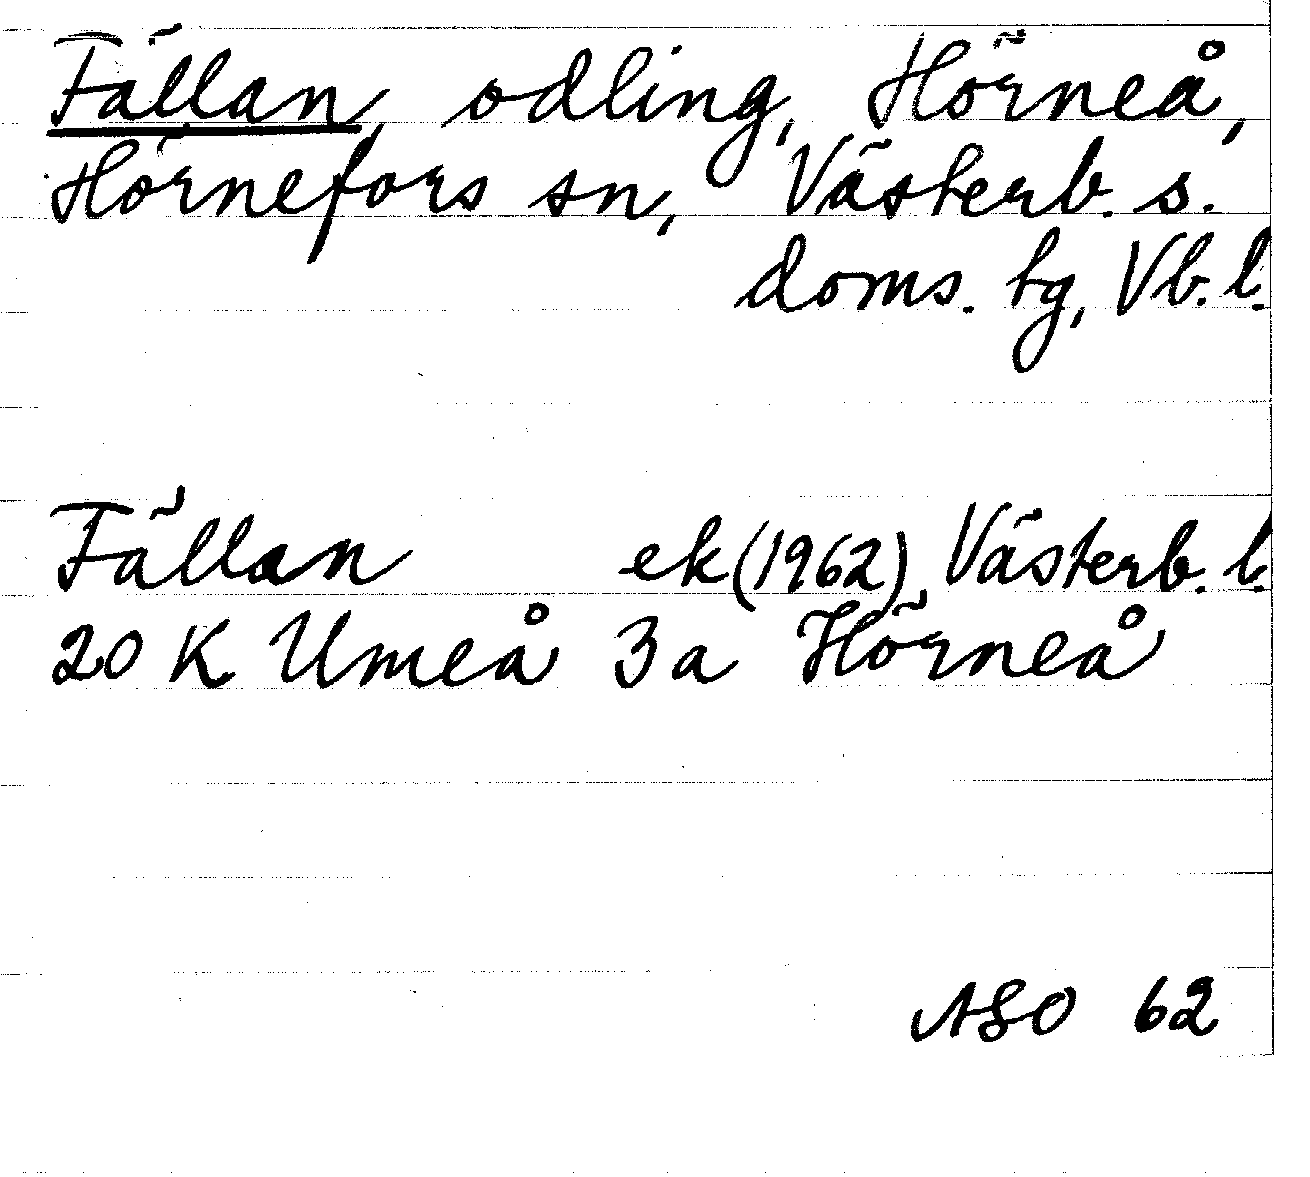 Fällan, odling, Hörneå,
Hörnefors sn, Västerb. s.
doms. tg, Vb. l.
Fällan ek (1962) Västerb. l.
20 K Umeå 3a Hörneå
ASO 62